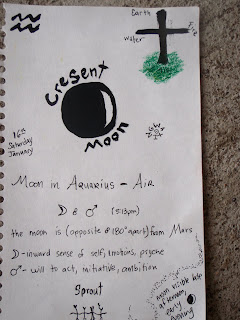 ♒
Earth
Fire
water
Cresent
Moon
16th
Saturday
January
Moon in Aquarius - Air
☽ ☍ ♂ (5:13pm)
the moon is (opposite & 180° apart) from Mars
☽ - inward sense of self, emotions, psyche
♂ - will to act, initiative, ambition
Sprout
moon visible
evening